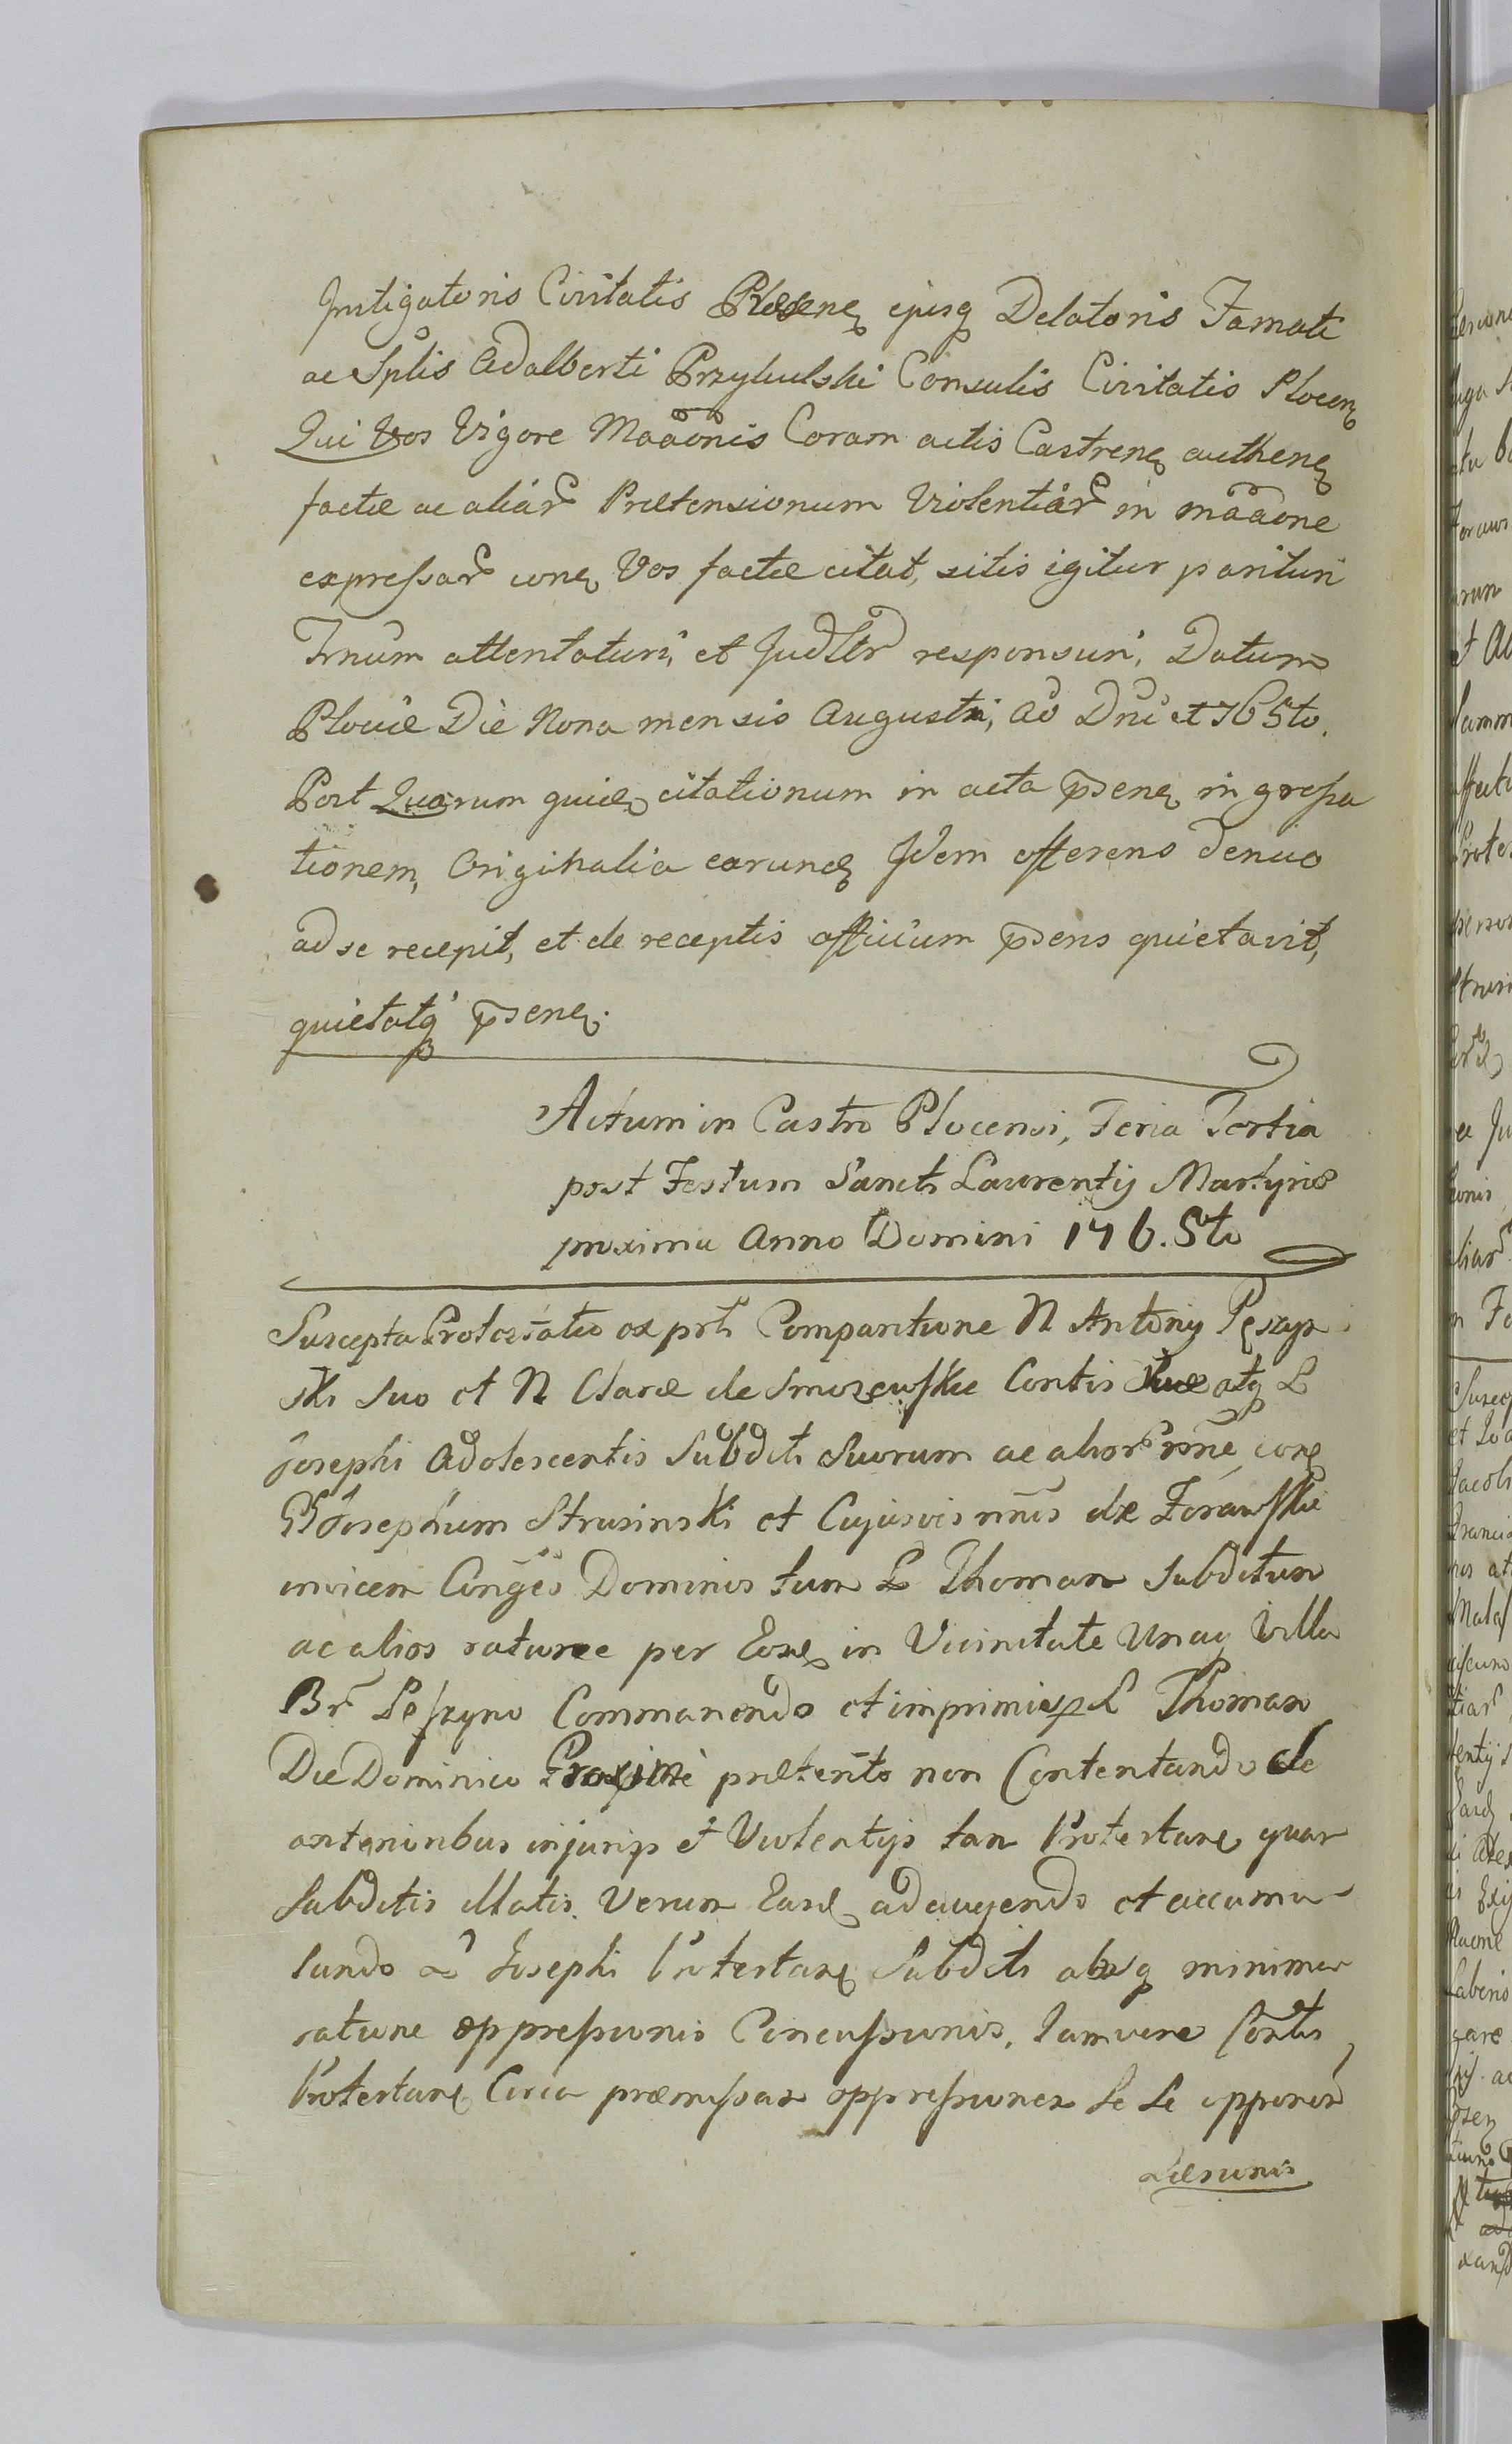 Instigatoris Civitatis Plocenẽ ejusq Delatoris Famati
ac Splis Adalberti Przybulski Consulis Civitatis Plocenẽ
Qui Vos Vigore Maãonis Coram actis Castrenẽ authenẽ
factæ ac aliar Prætensionum Violentiar in mãaone
expressar conẽ Vos factæ citat, sitis igitur parituri
Trnum attentaturi, et Judltr responsuri, Datum
Plociæ Die Nona mensis Augusti, Ao Dni 1765to.
Post Quarum quidẽ citationum in acta p̃senẽ in grossa
tionem, Originalia earundẽ Idem offerens denuo
ad se recepit, et de receptis officium p̃sens quietavit,
quietatq p̃senẽ.
Actum in Castro Plocensi, Feria Tertia
post Festum Sancti Laurentij Martyris
proxima Anno Domini 176.5to
Suscepta Protestatio ex prti Comparitione N Antonij
ski suo et N Claræ de Smoszewskie Contis suæ atq L
Josephi Adolescentis Subditi Suorum ac alior nõie conẽ
Josephum Strusinski et Cujusvis nñis de Zorawskie
invicem Conges Dominos tum L Thomam Subditum
ac alios ratione per Eosdẽ in Vicinitate Unaq Villa
Br Leszyno Commanendo et imprimis L Thomam
Die Dominico Proxime præterito non Contentando de
anterioribus injurijs et Violentijs tam Protestanẽ quam
Subditis illatis. Verum Easdẽ adaugendo et accumu-
lando Josephi Protestanẽ Subditi absq minima
ratione oppressionis Concussionis, tamvero Contis
Protestanẽ Circa præmissas oppressiones se se opponen
Læsionis